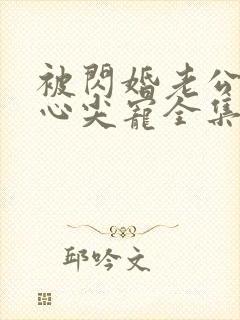 被閃婚老公
心尖寵全集
邱吟文